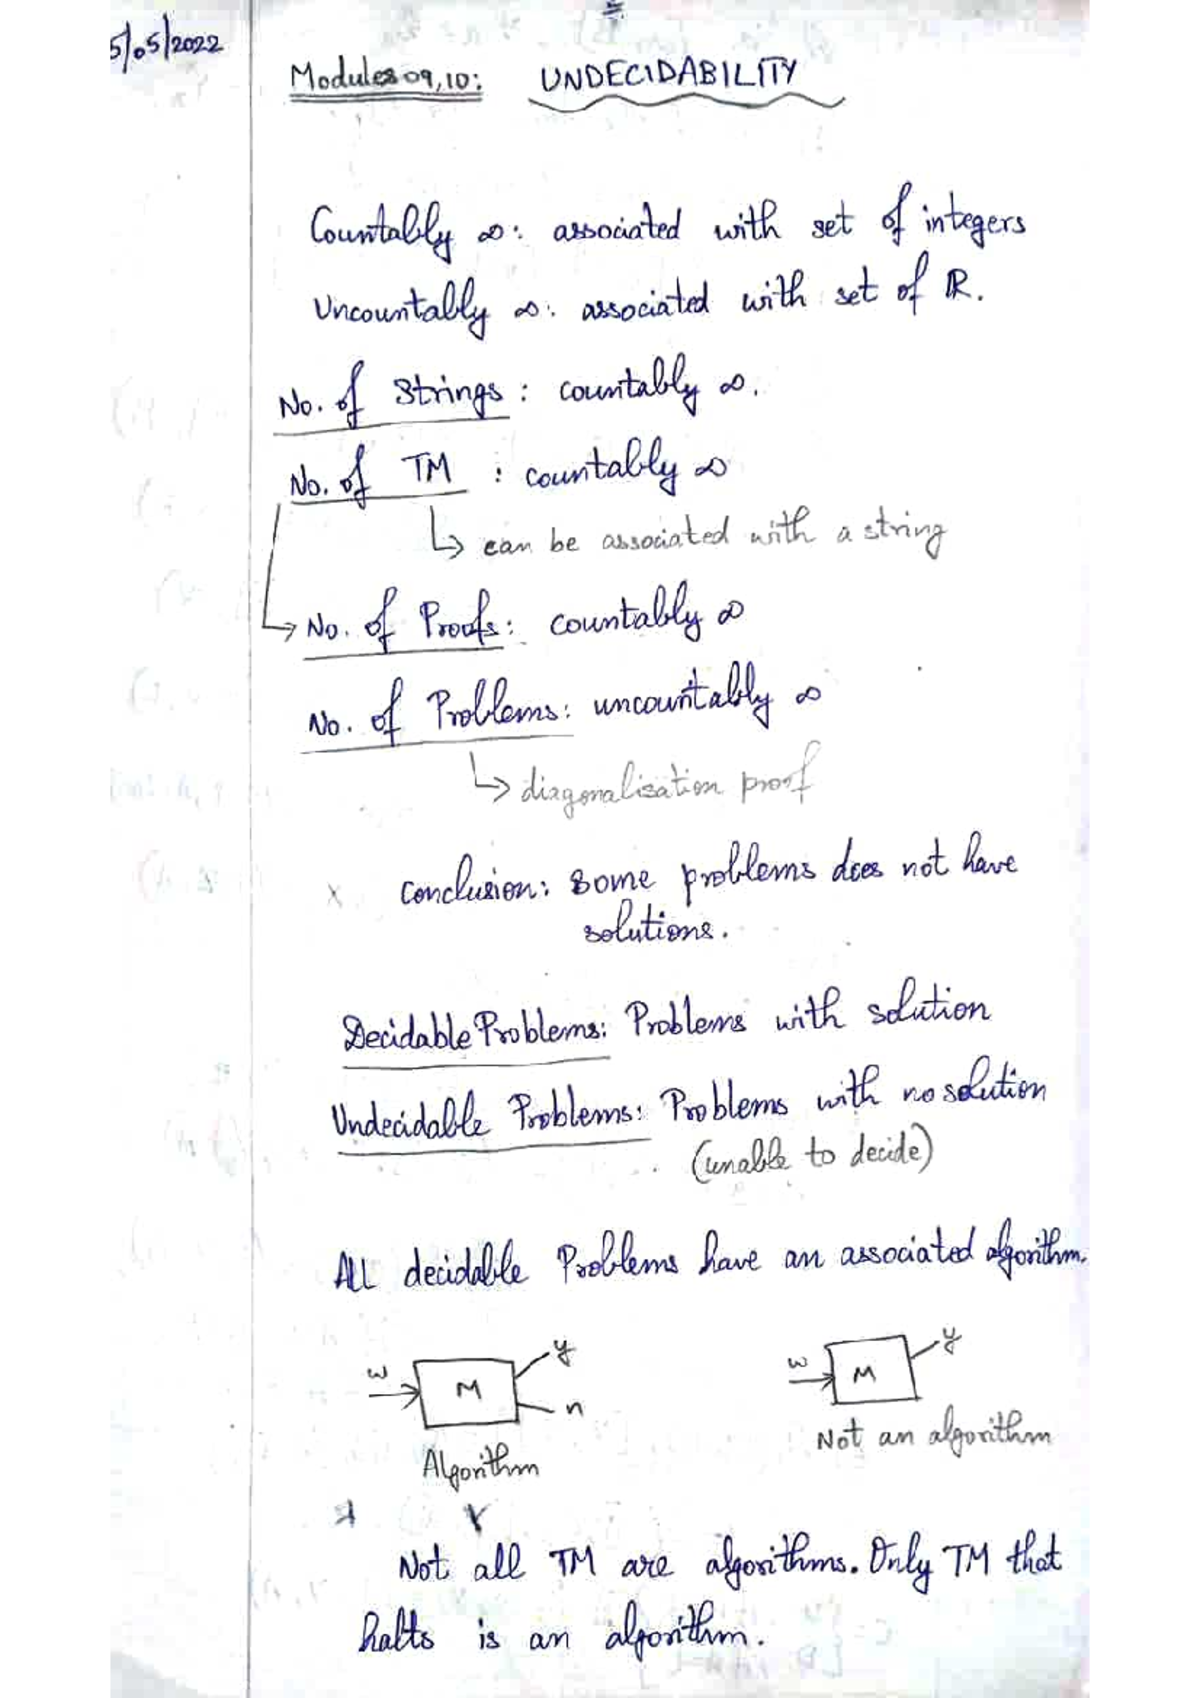 5/05/2022
Modules 09,10: UNDECIDABILITY
Countably ∞: associated with set of integers
Uncountably ∞: associated with set of ℝ.
No. of Strings: countably ∞.
No. of TM : countably ∞
↳ can be associated with a string
→ No. of Proofs: countably ∞
No. of Problems: uncountably ∞
↳ diagonalisation proof
x Conclusion: Some problems does not have
solutions.
Decidable Problems: Problems with solution
Undecidable Problems: Problems with no solution
(unable to decide)
All decidable Problems have an associated algorithm.
w M y n
w M y
Algorithm
Not an algorithm
Not all TM are algorithms. Only TM that
halts is an algorithm.